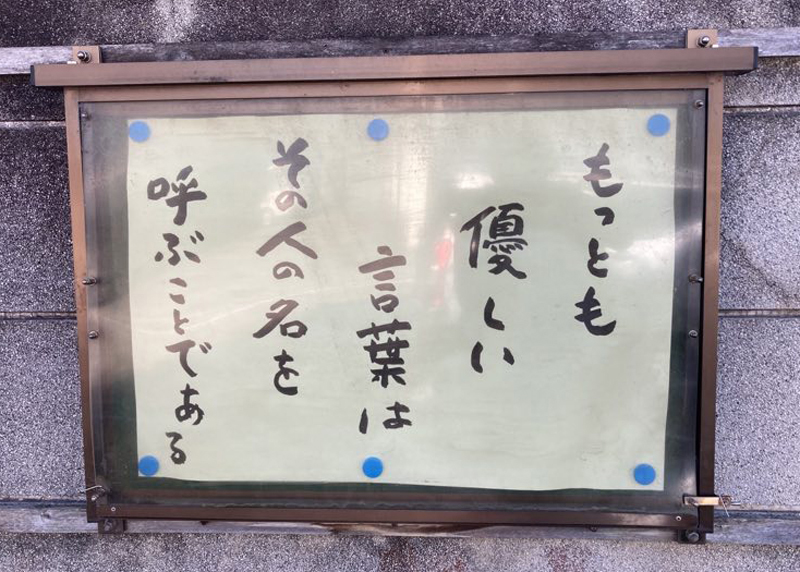 もっとも
優しい
言葉は
その人の名を
呼ぶことである